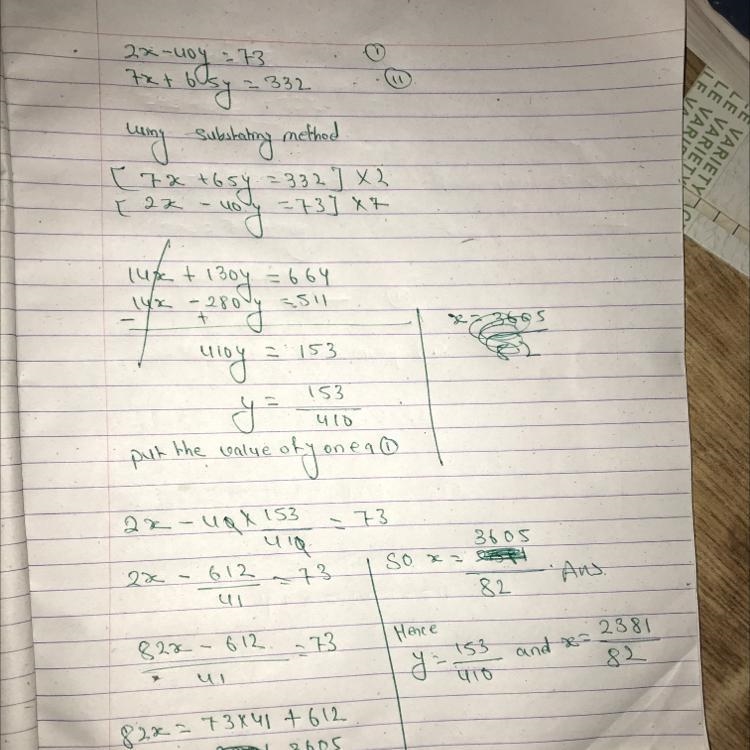 2x - 40y = 73 (i)
7x + 65y = 332 (ii)
using method
[ 7x + 65y = 332 ] × 2
[ 2x - 40y = 73 ] × 7
14x + 130y = 664
14x - 280y = 511
- +
410y = 153
y = 153/410
put the value of y on eq (i)
2x - 40 × 153/410 = 73
2x - 612/41 = 73
82x - 612/41 = 73
82x = 73×41 + 612
3605
x = 3605
82
So x = 3605/82 Ans.
Hence
y = 153/410 and x = 2381/82
VARIETY
LE VARIETY
LE VARI